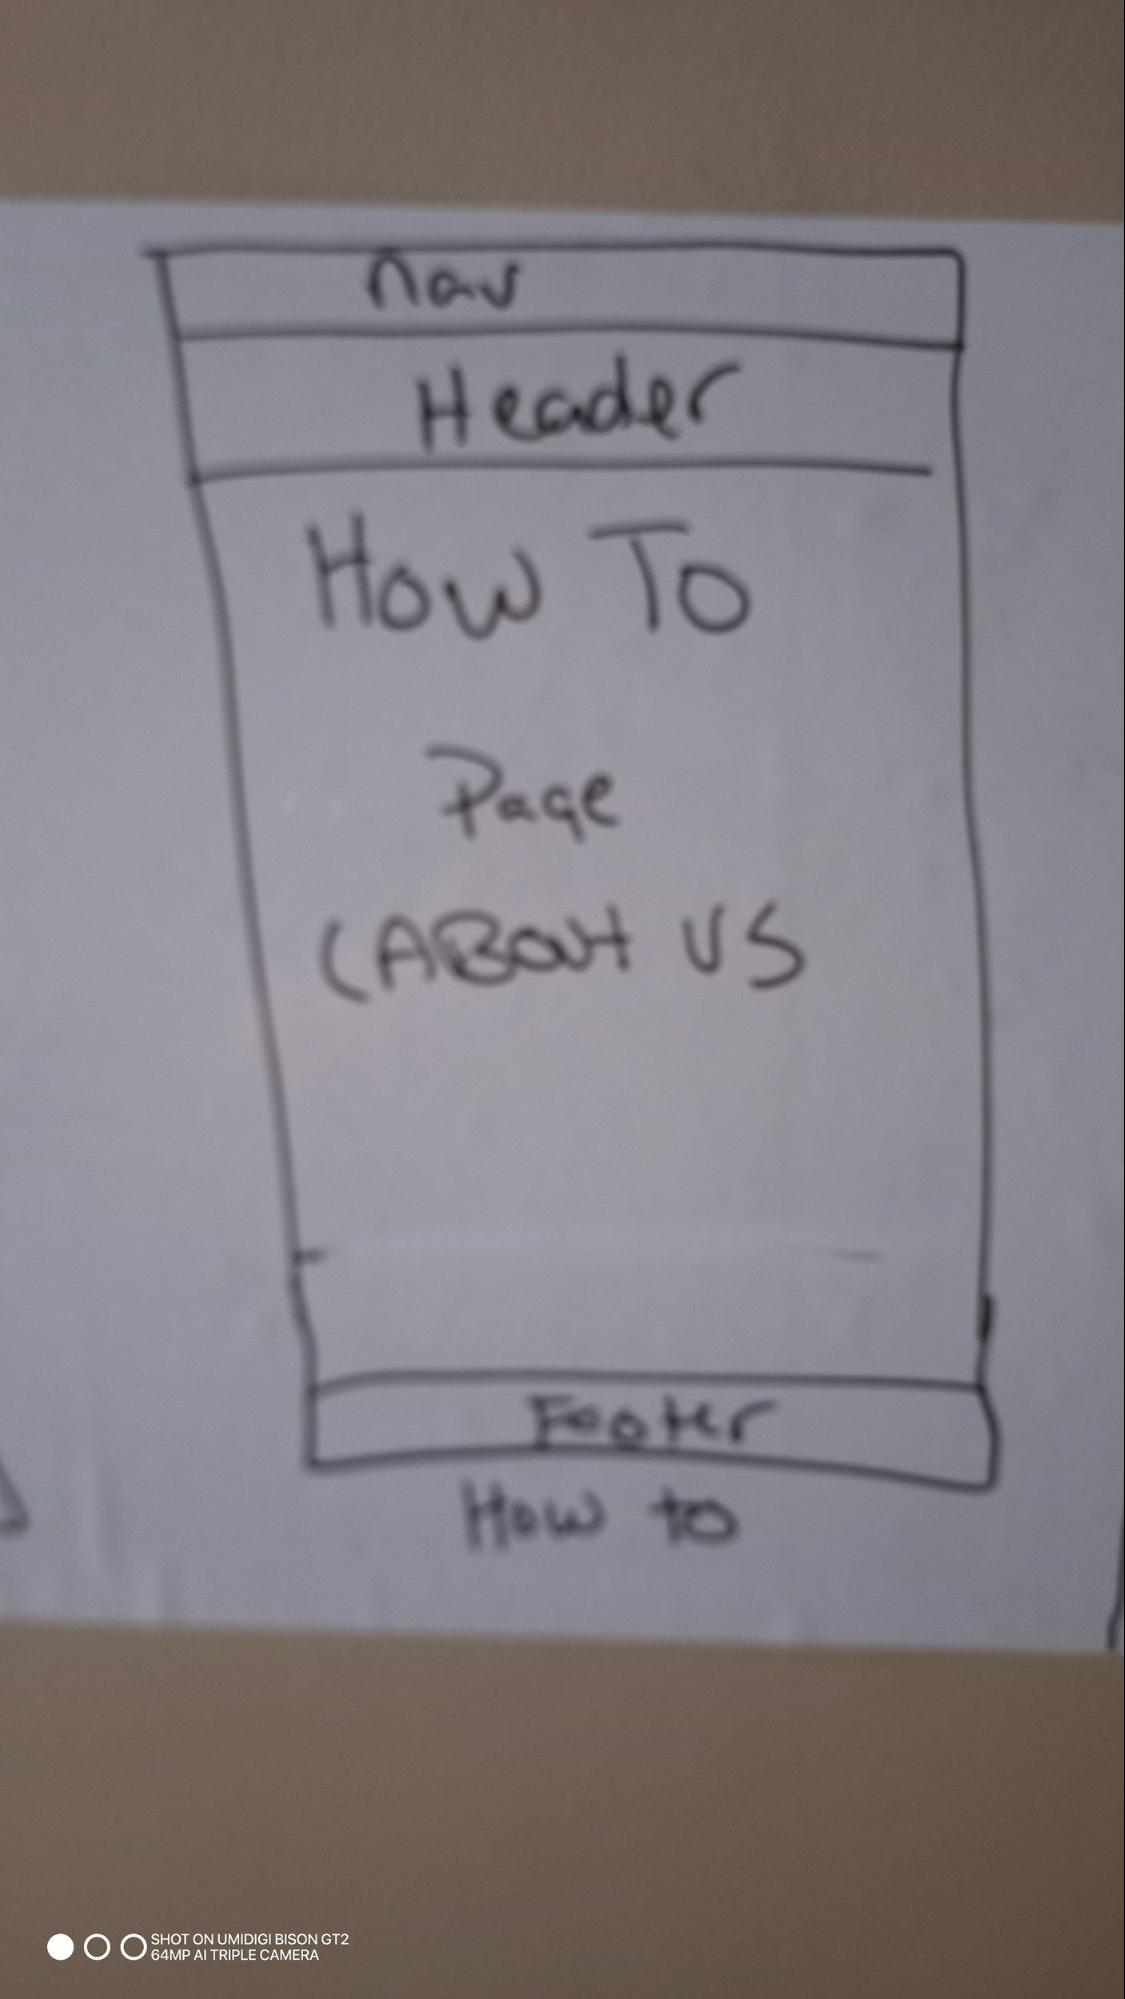 nav
Header
How To
Page
(ABOUT US
Footer
How to
SHOT ON UMIDIGI BISON GT2
64MP AI TRIPLE CAMERA